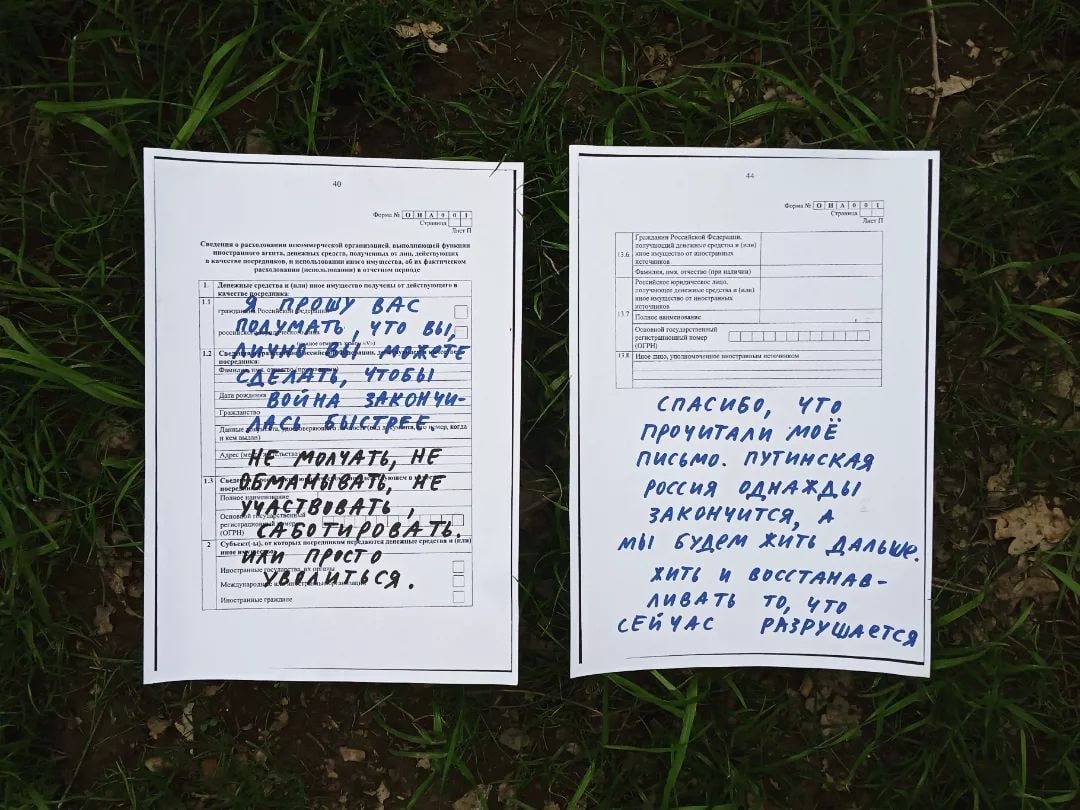 40
Форма № О И А 0 0 1
Страница
Лист П
Сведения о расходовании некоммерческой организацией, выполняющей функции
иностранного агента, денежных средств, полученных от лиц, действующих
в качестве посредников, и использовании иного имущества, об их фактическом
расходовании (использовании) в отчетном периоде
1. Денежные средства и (или) иное имущество получены от действующего в
качестве посредника:
1.1
гражданина Российской Федерации
Я ПРОШУ ВАС
ПОДУМАТЬ, ЧТО ВЫ,
ЛИЧНО ВЫ МОЖЕТЕ
СДЕЛАТЬ, ЧТОБЫ
ВОЙНА ЗАКОНЧИ-
ЛАСЬ БЫСТРЕЕ.
НЕ МОЛЧАТЬ, НЕ
ОБМАНЫВАТЬ, НЕ
УЧАСТВОВАТЬ,
САБОТИРОВАТЬ.
ИЛИ ПРОСТО
УВОЛИТЬСЯ.
1.2
посредника:
Дата рождения
Гражданство
и кем выдан)
1.3
Полное наименование
Основной государственный
регистрационный номер
(ОГРН)
2 Субъект(-ы), от которых посредником передаются денежные средства и (или)
иное имущество
Иностранные государства, их органы
Иностранные граждане
44
Форма № О И А 0 0 1
Страница
Лист П
13.6 Гражданин Российской Федерации,
получающий денежные средства и (или)
иное имущество от иностранных
источников
Фамилия, имя, отчество (при наличии)
13.7 Российское юридическое лицо,
получающее денежные средства и (или)
иное имущество от иностранных
источников
Полное наименование
Основной государственный
регистрационный номер
(ОГРН)
13.8 Иное лицо, уполномоченное иностранным источником
СПАСИБО, ЧТО
ПРОЧИТАЛИ МОЁ
ПИСЬМО. ПУТИНСКАЯ
РОССИЯ ОДНАЖДЫ
ЗАКОНЧИТСЯ, А
МЫ БУДЕМ ЖИТЬ ДАЛЬШЕ.
ЖИТЬ И ВОССТАНАВ-
ЛИВАТЬ ТО, ЧТО
СЕЙЧАС РАЗРУШАЕТСЯ